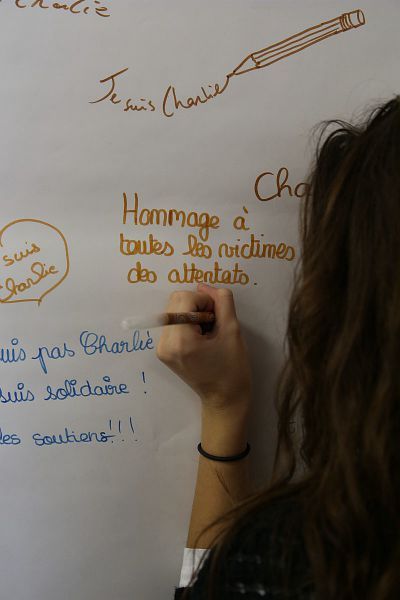 Charlie
Je suis Charlie
Cha
Hommage à
toutes les victimes
des attentats.
suis
Charlie
uis pas Charlie
suis solidaire !
les soutiens!!!